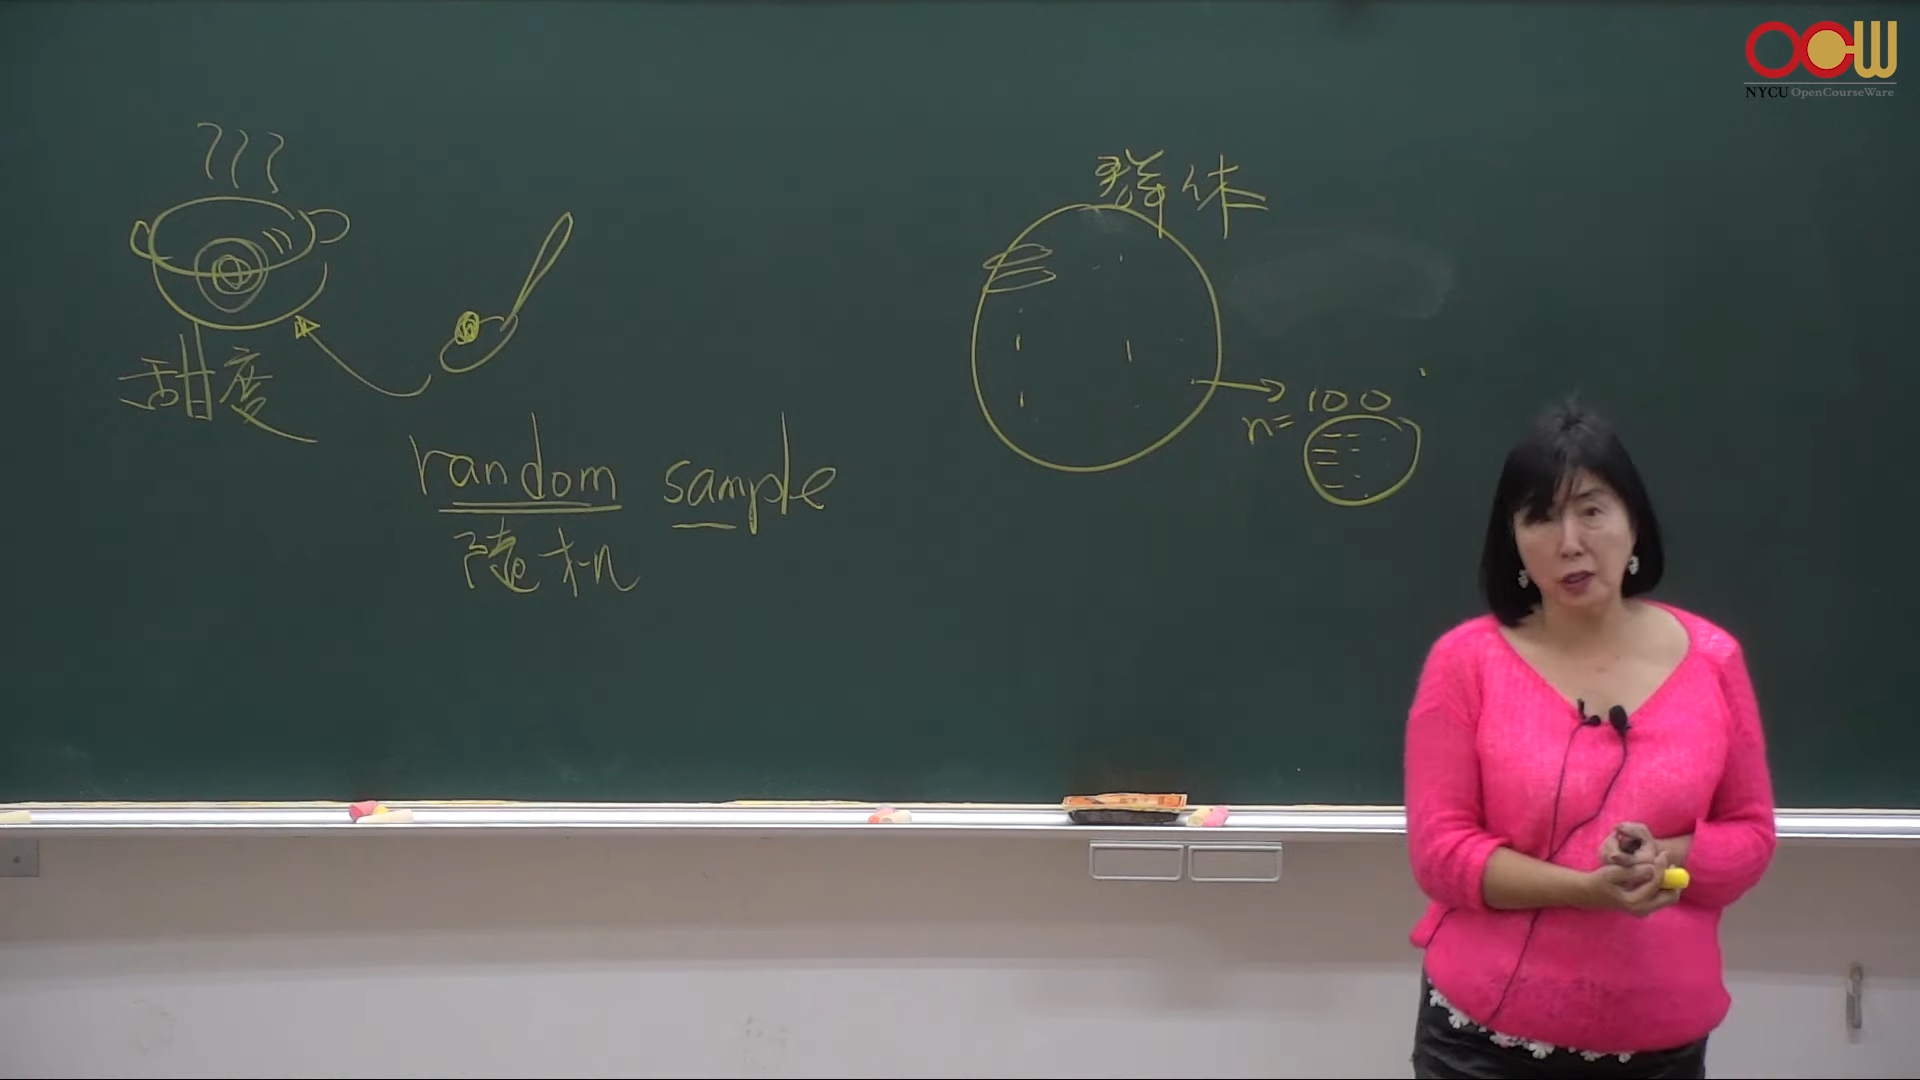 OCW
NYCU OpenCourseWare
甜度
random sample
隨机
群体
n=100